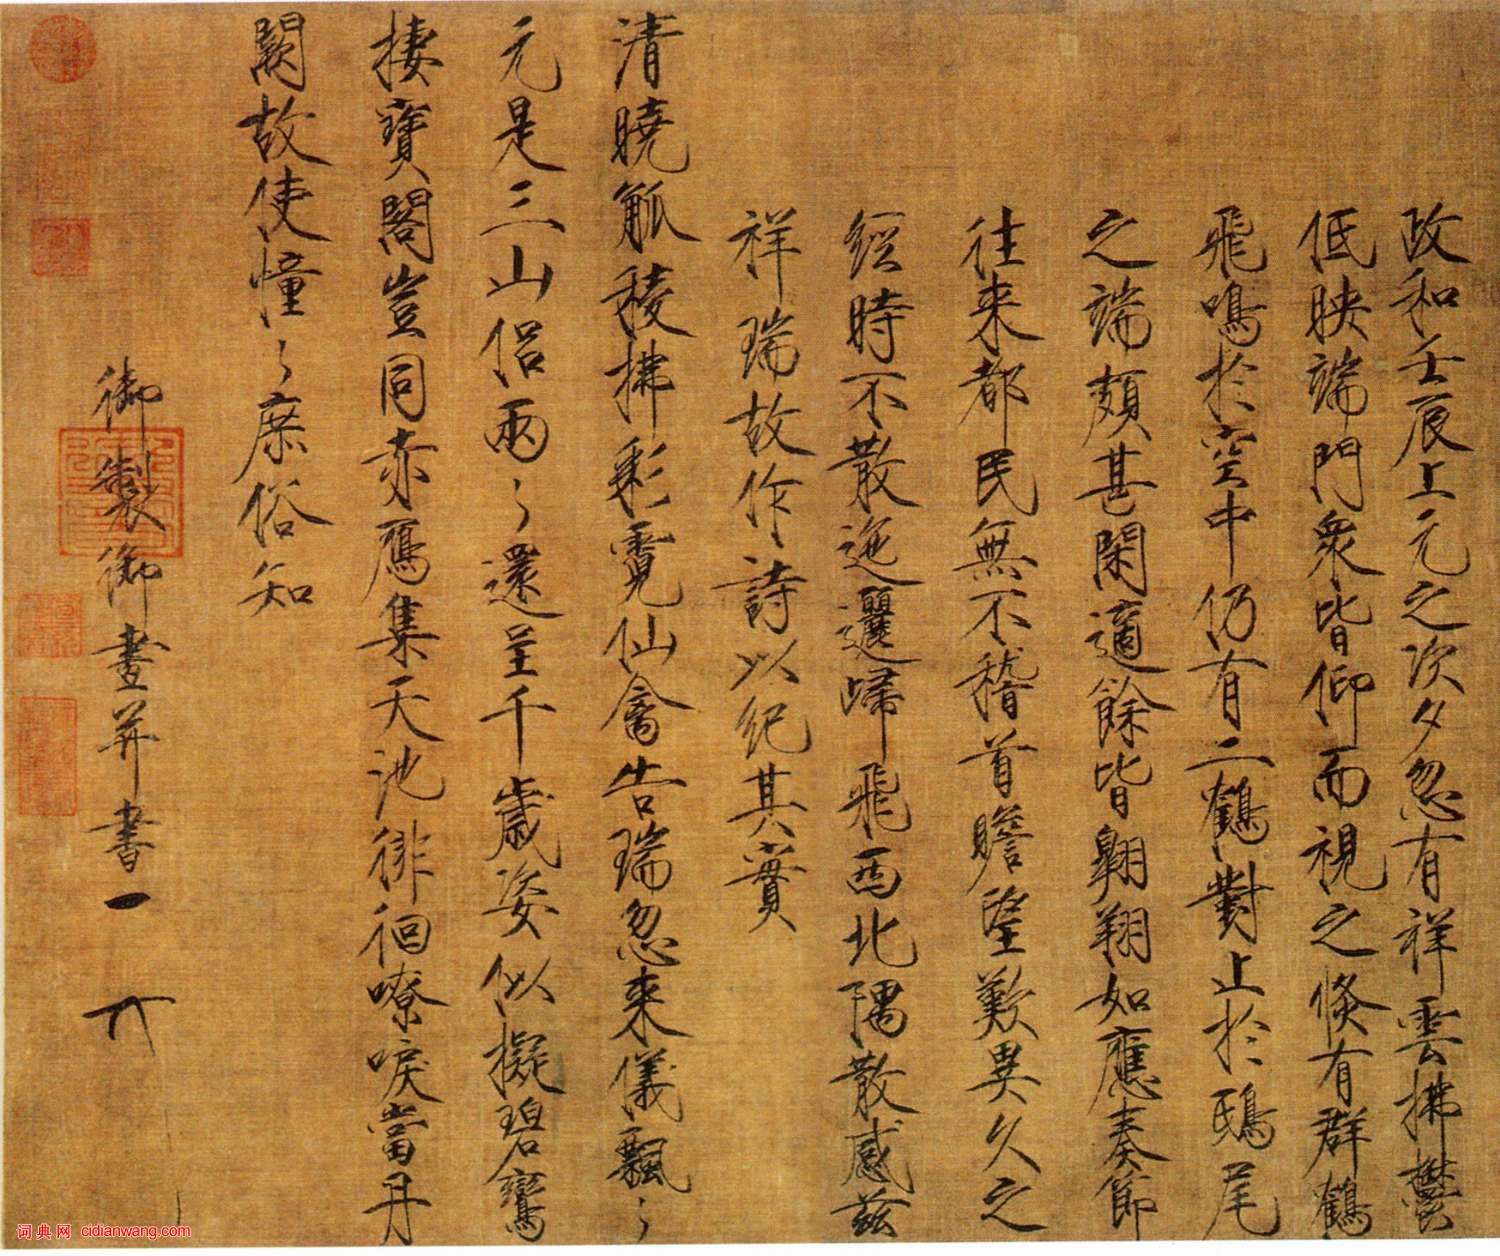 政和壬辰上元之次夕忽有祥雲拂鬱
低映端門衆皆仰而視之倏有群鶴
飛鳴於空中仍有二鶴對止於鴟尾
之端頗甚閑適餘皆翱翔如應奏節
往来都民無不稽首瞻望歎異久之
經時不散迤邐歸飛西北隅散感茲
祥瑞故作詩以紀其實
清曉觚稜拂彩霓仙禽告瑞忽来儀飄〻
元是三山侣兩〻還呈千歲姿似擬碧鸞
棲寶閣豈同赤鴈集天池徘徊嘹唳當丹
闕故使憧〻庶俗知
御製御畫并書
詞典网 cidianwang.com